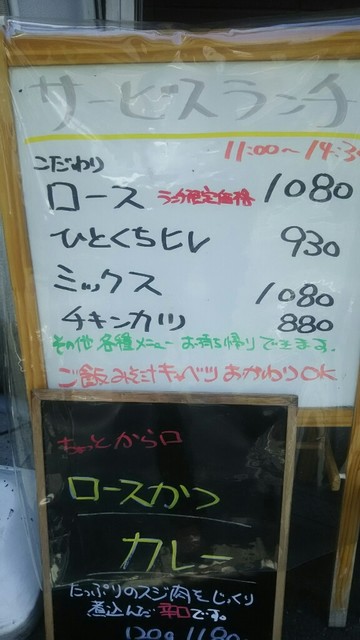 サービスランチ
11:00～14:3
こだわり
ロース ランチ限定価格 1080
ひとくちヒレ 930
ミックス 1080
チキンカツ 880
その他 各種メニュー お持ち帰りできます。
ご飯みそ汁キャベツおかわりOK
ちょっとから口
ロースかつ
カレー
たっぷりのスジ肉をじっくり
煮込んだ辛口です。
120g 1180